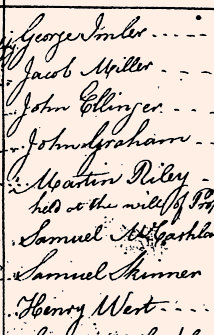 George Imler
Jacob Miller
John Ellinger
John Graham
Martin Riley
held at the mill of
Samuel
Samuel Skinner
Henry Wert